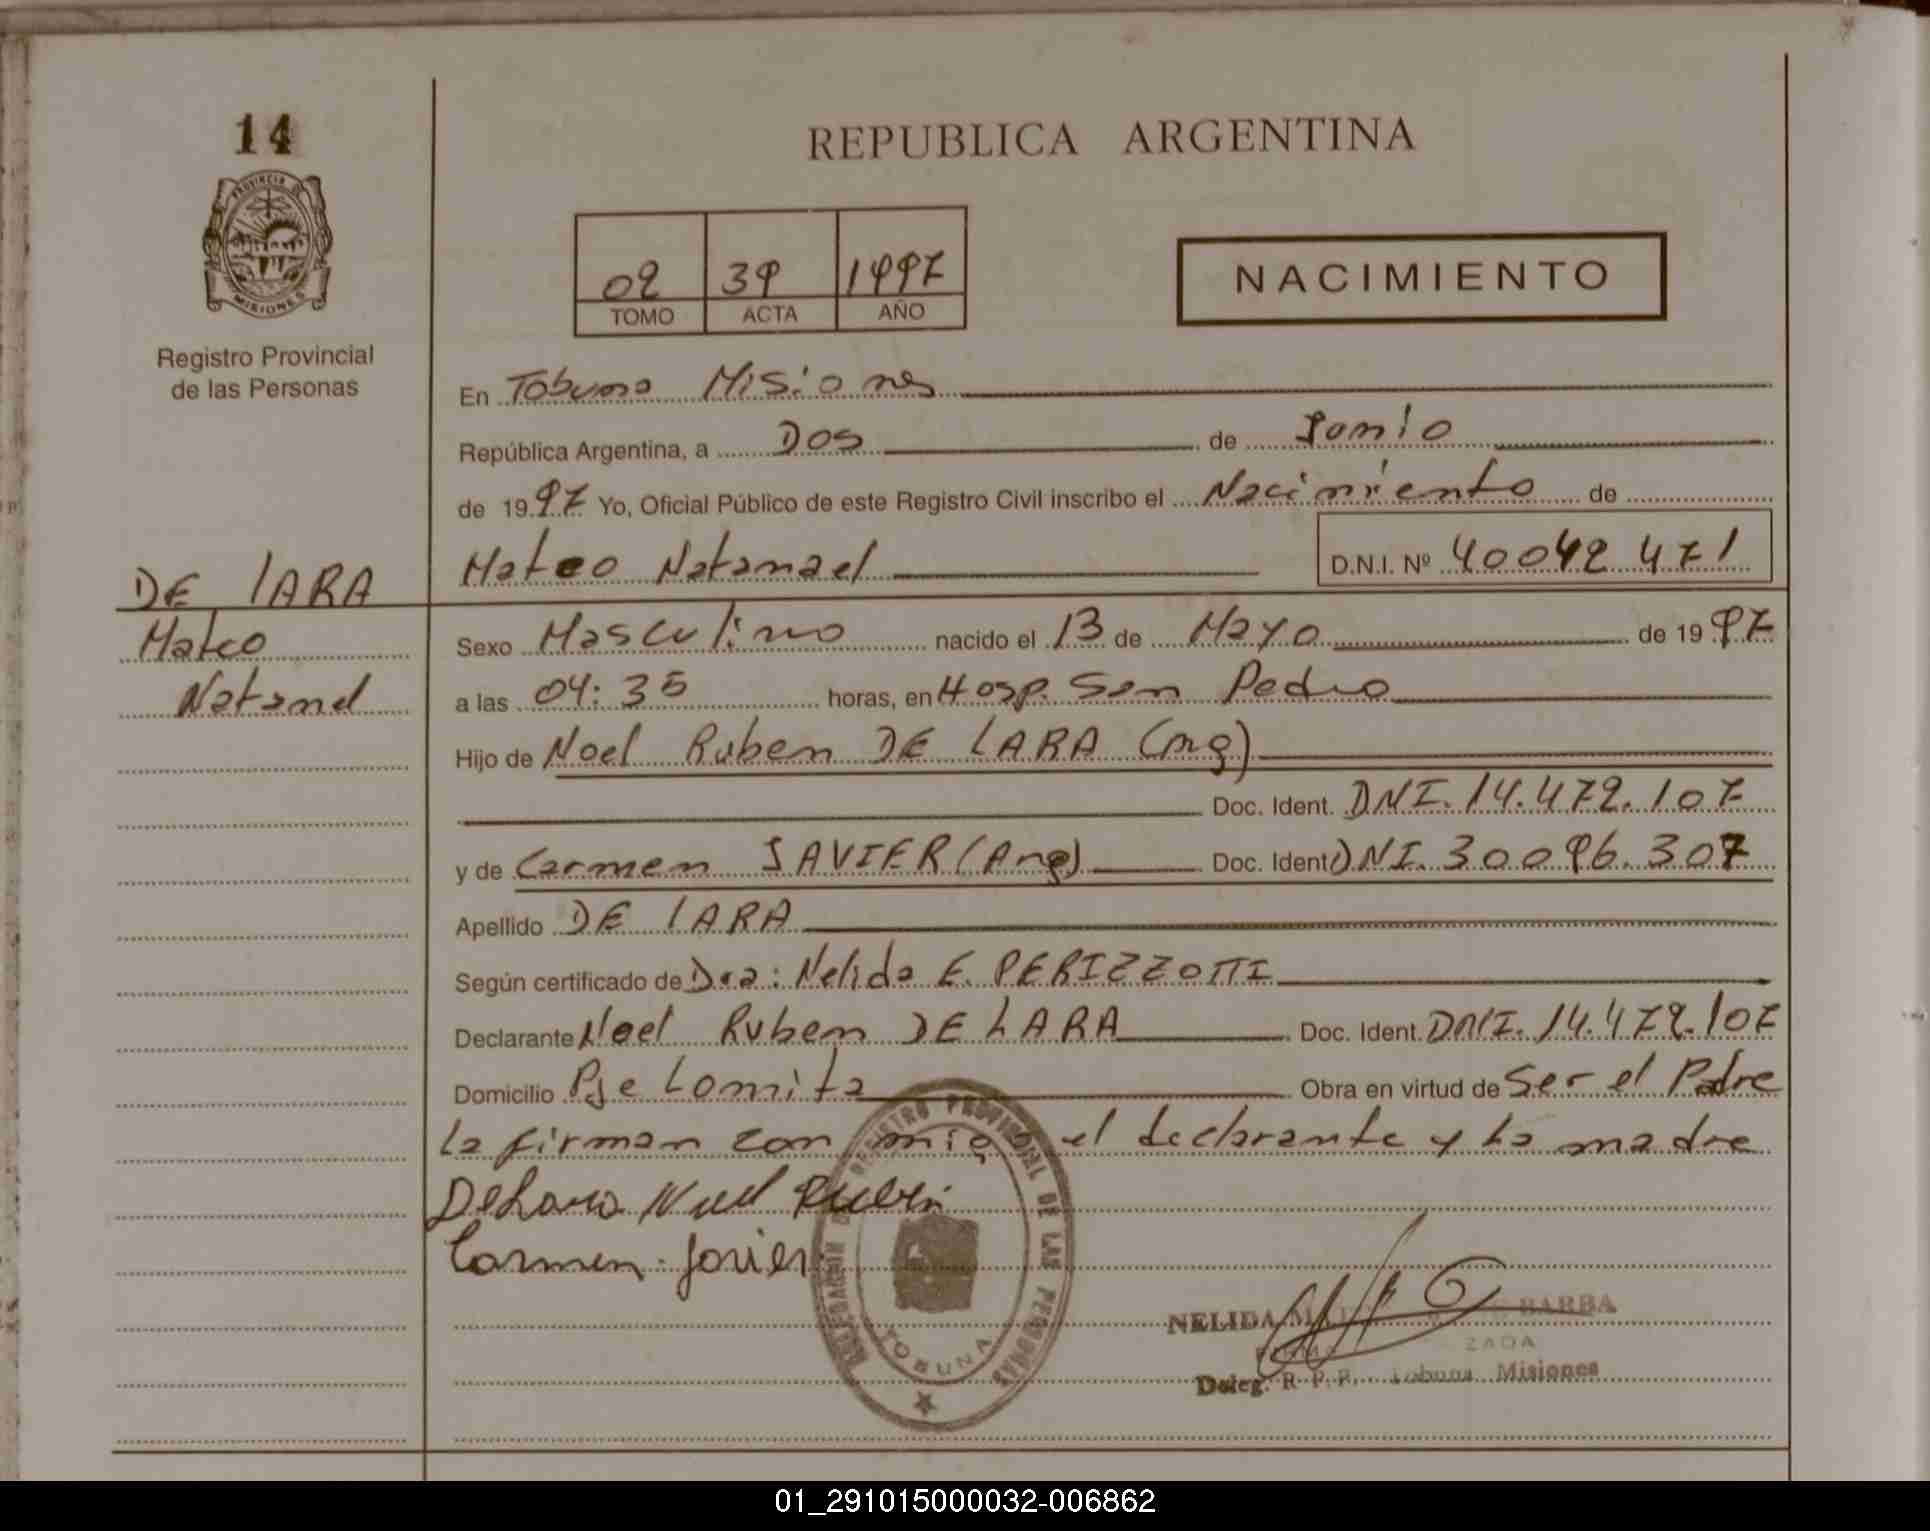 14
REPUBLICA ARGENTINA
PROVINCIA DE
MISIONES
Registro Provincial
de las Personas
02 39 1997
TOMO ACTA AÑO
NACIMIENTO
En Tobuna Misiones
República Argentina, a Dos de Junio
de 1997 Yo, Oficial Público de este Registro Civil inscribo el Nacimiento de
Mateo Natanael D.N.I. Nº 40042471
DE LARA
Mateo
Natanael
Sexo Masculino nacido el 13 de Mayo de 1997
a las 04:35 horas, en Hosp. San Pedro
Hijo de Noel Ruben DE LARA (Arg)
Doc. Ident. DNI. 14.472.107
y de Carmen JAVIER (Arg) Doc. Ident DNI. 30096.307
Apellido DE LARA
Según certificado de Dra: Nelida E. PERIZZOTTI
Declarante Noel Ruben DE LARA Doc. Ident. DNI. 14.472.107
Domicilio Pje Lomita Obra en virtud de Ser el Padre
La firman con migo el declarante y La madre
DeLara Noel Ruben
Carmen Javier
DELEGACION DE REGISTRO PROVINCIAL DE LAS PERSONAS
TOBUNA
NELIDA BARBA
ZADA
Deleg. R.P.P. Tobuna Misiones
01_291015000032-006862